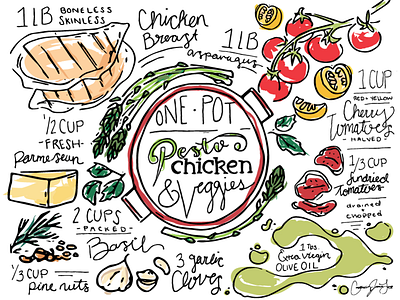 1 LB BONELESS
SKINLESS
Chicken
Breast
1 LB
asparagus
ONE-POT
Pesto
chicken
& Veggies
1 CUP
RED + YELLOW
Cherry
Tomatoes
HALVED
1/2 CUP
-FRESH-
Parmesean
1/3 CUP
Sundried
Tomatoes
drained
&
chopped
2 CUPS
PACKED
Basil
1/3 CUP
pine nuts
3 garlic
Cloves
1 Tbs.
Extra Virgin
OLIVE OIL